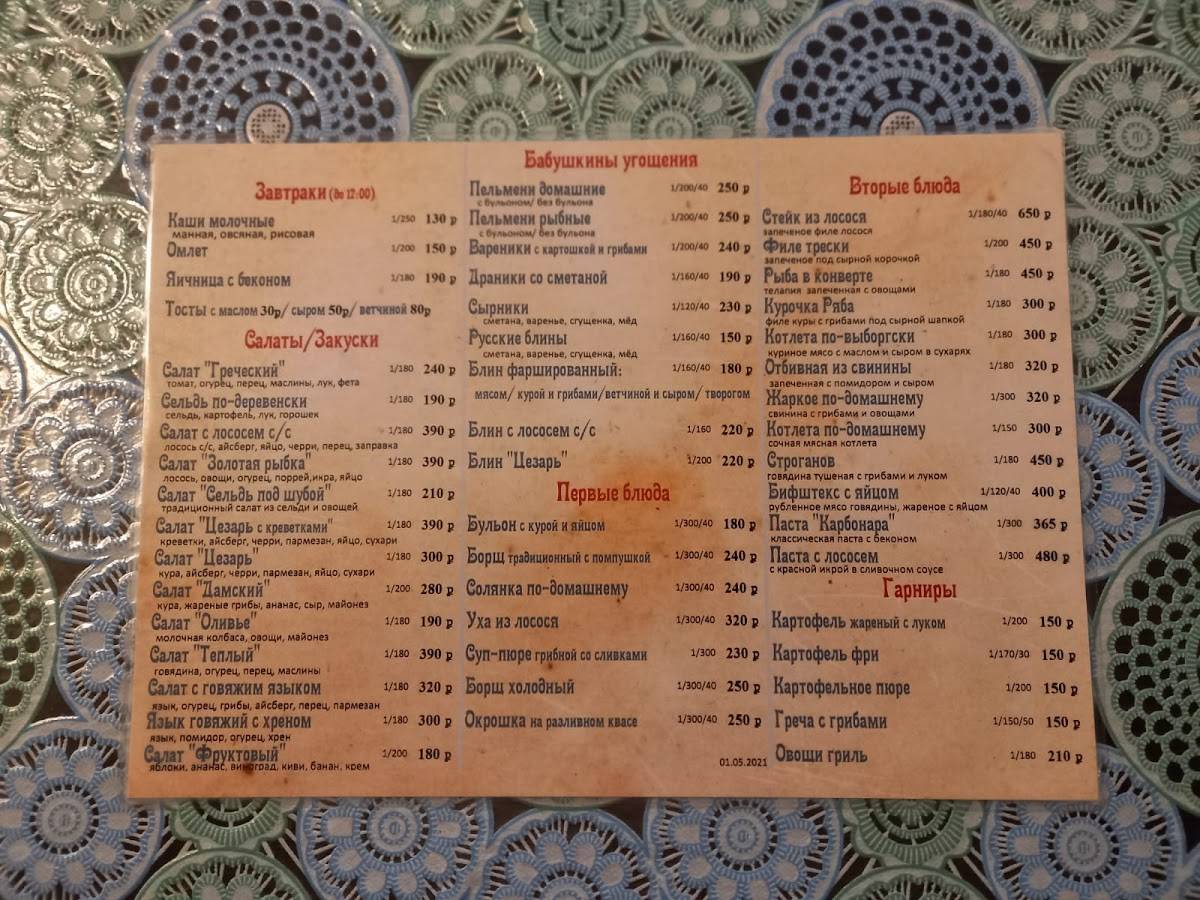 Завтраки (до 12:00)
Каши молочные 1/250 130 р
манная, овсяная, рисовая
Омлет 1/200 150 р
Яичница с беконом 1/180 190 р
Тосты с маслом 30р/ сыром 50р/ ветчиной 80р
Салаты/Закуски
Салат "Греческий" 1/180 240 р
томат, огурец, перец, маслины, лук, фета
Сельдь по-деревенски 1/180 190 р
сельдь, картофель, лук, горошек
Салат с лососем с/с 1/180 390 р
лосось с/с, айсберг, яйцо, черри, перец, заправка
Салат "Золотая рыбка" 1/180 390 р
лосось, овощи, огурец, поррей,икра, яйцо
Салат "Сельдь под шубой" 1/180 210 р
традиционный салат из сельди и овощей
Салат "Цезарь с креветками" 1/180 390 р
креветки, айсберг, черри, пармезан, яйцо, сухари
Салат "Цезарь" 1/180 300 р
кура, айсберг, черри, пармезан, яйцо, сухари
Салат "Дамский" 1/200 280 р
кура, жареные грибы, ананас, сыр, майонез
Салат "Оливье" 1/180 190 р
молочная колбаса, овощи, майонез
Салат "Теплый" 1/180 390 р
говядина, огурец, перец, маслины
Салат с говяжим языком 1/180 320 р
язык, огурец, грибы, айсберг, перец, пармезан
Язык говяжий с хреном 1/180 300 р
язык, помидор, огурец, хрен
Салат "Фруктовый" 1/200 180 р
яблоки, ананас, виноград, киви, банан, крем
Бабушкины угощения
Пельмени домашние 1/200/40 250 р
с бульоном/ без бульона
Пельмени рыбные 1/200/40 250 р
с бульоном/ без бульона
Вареники с картошкой и грибами 1/200/40 240 р
Драники со сметаной 1/160/40 190 р
Сырники 1/120/40 230 р
сметана, варенье, сгущенка, мёд
Русские блины 1/160/40 150 р
сметана, варенье, сгущенка, мёд
Блин фаршированный: 1/160/40 180 р
мясом/ курой и грибами/ветчиной и сыром/ творогом
Блин с лососем с/с 1/160 220 р
Блин "Цезарь" 1/200 220 р
Первые блюда
Бульон с курой и яйцом 1/300/40 180 р
Борщ традиционный с помпушкой 1/300/40 240 р
Солянка по-домашнему 1/300/40 240 р
Уха из лосося 1/300/40 320 р
Суп-пюре грибной со сливками 1/300 230 р
Борщ холодный 1/300/40 250 р
Окрошка на разливном квасе 1/300/40 250 р
01.05.2021
Вторые блюда
Стейк из лосося 1/180/40 650 р
запеченое филе лосося
Филе трески 1/200 450 р
запеченое под сырной корочкой
Рыба в конверте 1/180 450 р
телапия запеченная с овощами
Курочка Ряба 1/180 300 р
филе куры с грибами под сырной шапкой
Котлета по-выборгски 1/180 300 р
куриное мясо с маслом и сыром в сухарях
Отбивная из свинины 1/180 320 р
запеченная с помидором и сыром
Жаркое по-домашнему 1/300 320 р
свинина с грибами и овощами
Котлета по-домашнему 1/150 300 р
сочная мясная котлета
Строганов 1/180 450 р
говядина тушеная с грибами и луком
Бифштекс с яйцом 1/120/40 400 р
рубленное мясо говядины, жареное с яйцом
Паста "Карбонара" 1/300 365 р
классическая паста с беконом
Паста с лососем 1/300 480 р
с красной икрой в сливочном соусе
Гарниры
Картофель жареный с луком 1/200 150 р
Картофель фри 1/170/30 150 р
Картофельное пюре 1/200 150 р
Греча с грибами 1/150/50 150 р
Овощи гриль 1/180 210 р